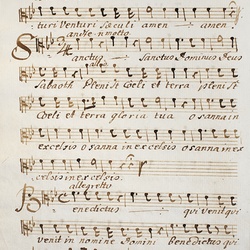 turi Venturi Sæculi amen amen
andte. n motto
Sanctus Sanctus Dominus Deus
Sabaoth Pleni st Cœli et terra pleni st
Cœli et terra gloria tua osanna in
excelsis osanna in excelsis osanna in ex
celsis in excelsis.
allegretto
Benedictus qui venit qui
venit in nomine Domini benedictus qui